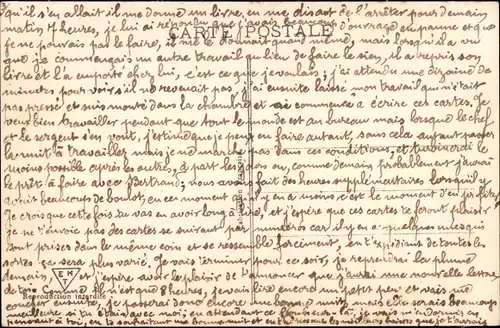 qu'il s'en allait il me donne un livre, en me disant de l'arrêter pour demain
matin 7 heures, je lui ai répondu que j'avais beaucoup d'ouvrage en panne et que
je ne pouvais pas le faire, il me le donnait quand même, mais lorsqu'il a vu
CARTE POSTALE
que je commençais un autre travail au lieu de faire le sien, il a repris son
livre et l'a emporté chez lui, c'est ce que je voulais; j'ai attendu une dizaine de
minutes pour voir s'il ne revenait pas, j'ai ensuite laissé mon travail qui n'était
pas pressé et suis monté dans la chambre et ai commencé a écrire ces cartes. Je
veux bien travailler pendant que tout le monde est au bureau mais lorsque le chef
et le sergent s'en vont, j'estime que je peux en faire autant, sans cela autant passer
la nuit à travailler mais je ne marche pas dans ces conditions, et turbinerai le
moins possible après les autres, à part les jours où, comme demain probablement j'aurai
le prêt à faire avec Bertrand, nous avons fait des heures supplémentaires lorsqu'il y
avait beaucoup de boulot, en ces moments
Je crois que cette fois tu vas en avoir long et j'espère que ces cartes te feront plaisir
je ne t'envoie pas des cartes se suivant par numéros car il y en a quelques unes qui
sont prises dans le même coin et se ressemblent forcément, en t'expédiant de toutes les
sortes ça sera plus varié. Je vais terminer pour ce soir, je reprendrai la plume
demain, et j'espère avoir le plaisir de t'annoncer que j'aurai une nouvelle lettre
EN
de toi. Comme il n'est que 8 heures, je vais lire encore un petit peu et vais me
Reproduction interdite
coucher ensuite, je passerai donc encore une bonne nuit, mais elle serait beaucoup
meilleure si tu étais avec moi, enfin je vais
pensant à toi, en te souhaitant une bonne nuit et en